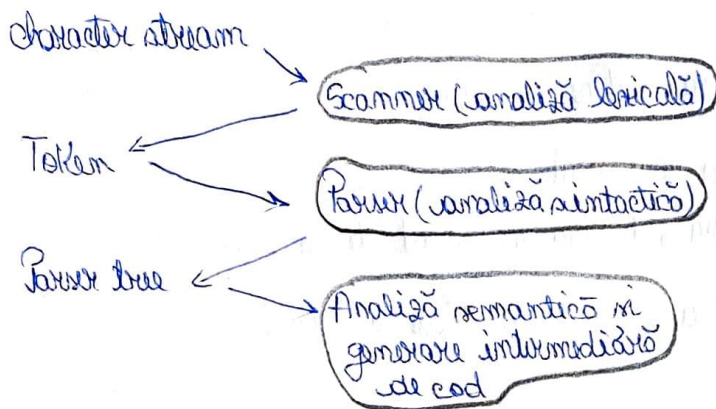 Character stream
Scanner (analiză lexicală)
Token
Parser (analiză sintactică)
Parser tree
Analiză semantică si
generare intermediară
de cod